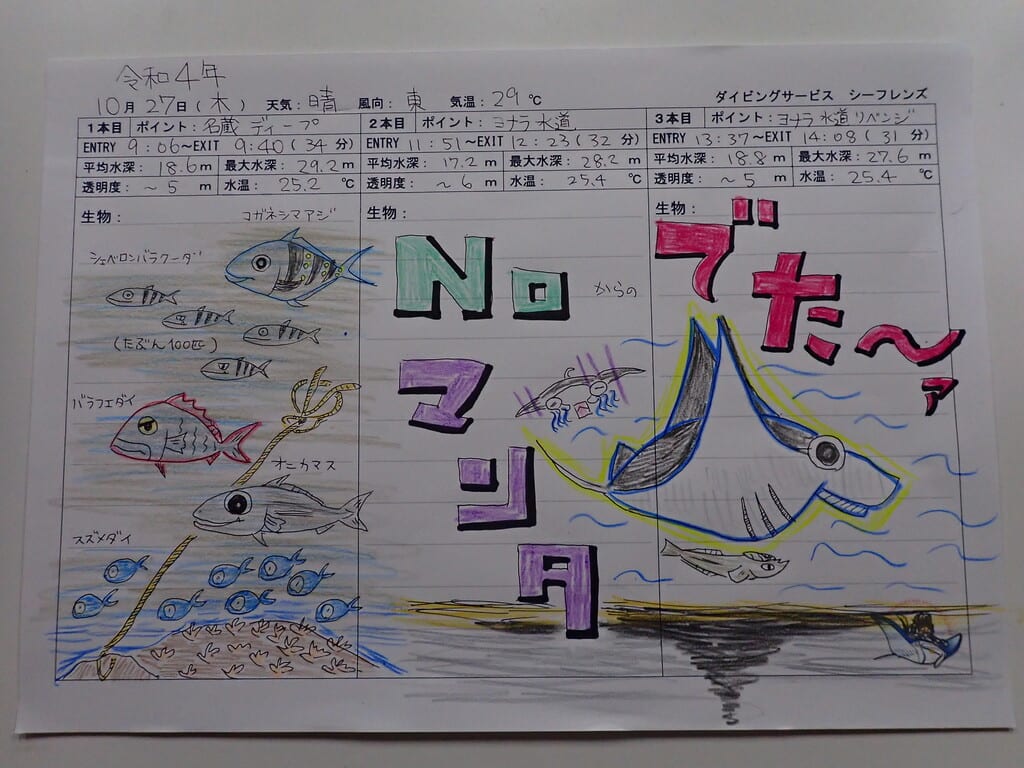 令和4年
10月27日(木) 天気:晴 風向:東 気温:29℃ ダイビングサービス シーフレンズ
1本目 ポイント:名蔵 ディープ
ENTRY 9:06~EXIT 9:40(34 分)
平均水深:18.6m 最大水深:29.2m
透明度:~5 m 水温:25.2 ℃
生物:
コガネシマアジ
シェベロンバラクーダ
(たぶん100匹)
バラフエダイ
オニカマス
スズメダイ
2本目 ポイント:ヨナラ水道
ENTRY 11:51~EXIT 12:23(32 分)
平均水深:17.2m 最大水深:28.2m
透明度:~6 m 水温:25.4 ℃
生物:
No
からの
マンタ
3本目 ポイント:ヨナラ水道リベンジ
ENTRY 13:37~EXIT 14:08(31 分)
平均水深:18.8m 最大水深:27.6m
透明度:~5 m 水温:25.4 ℃
生物:
でた~ァ